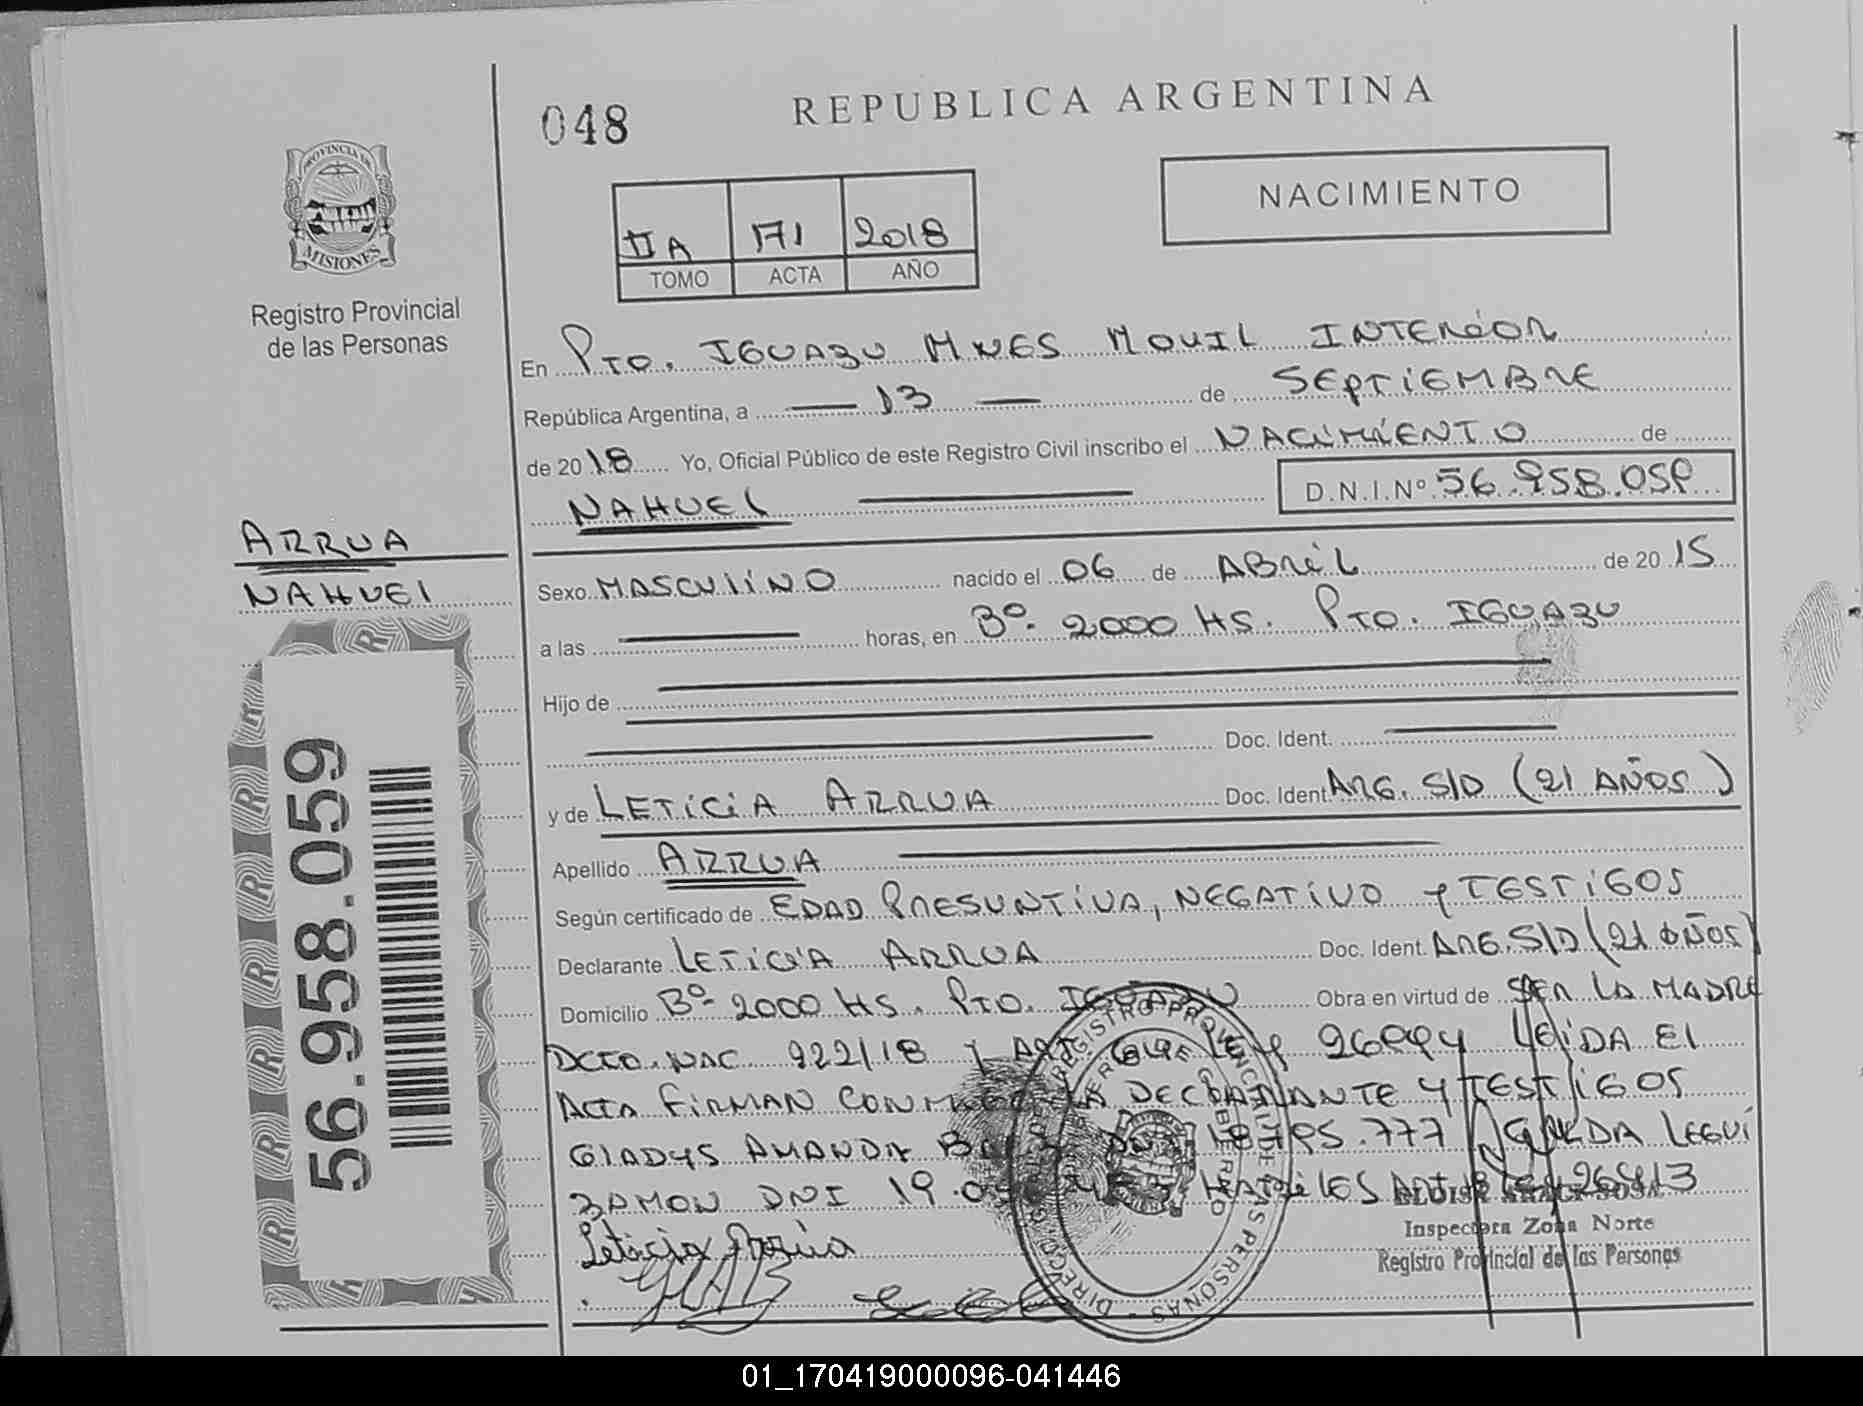 048
REPUBLICA ARGENTINA
NACIMIENTO
PROVINCIA DE
MISIONES
Registro Provincial
de las Personas
II A 171 2018
TOMO ACTA AÑO
En Pto. IGUAZU MNES MOVIL INTERIOR
República Argentina, a 13 de SEPTIEMBRE
de 2018 Yo, Oficial Público de este Registro Civil inscribo el NACIMIENTO de
NAHUEL D.N.I.Nº 56.958.059
ARRUA
NAHUEL
56.958.059
Sexo MASCULINO nacido el 06 de ABRIL de 2015
a las horas, en Bº 2000 HS. PTO. IGUAZU
Hijo de
Doc. Ident.
y de LETICIA ARRUA Doc. Ident. ARG. S/D (21 AÑOS)
Apellido ARRUA
Según certificado de EDAD PRESUNTIVA, NEGATIVO y TESTIGOS
Declarante LETICIA ARRUA Doc. Ident. ARG. S/D (21 AÑOS)
Domicilio Bº 2000 HS. PTO. IGUAZU Obra en virtud de SER LA MADRE
DCTO. NAC 922/18 y LEY LEIDA EL
ACTA FIRMAN CONMIGO LA DECLARANTE Y TESTIGOS
GLADYS AMANDA DNI LEGUI
ZAMON DNI 19.0
Leticia Arrua
Inspectora Zona Norte
Registro Provincial de las Personas
REGISTRO PROVINCIAL DE LAS PERSONAS
01_170419000096-041446